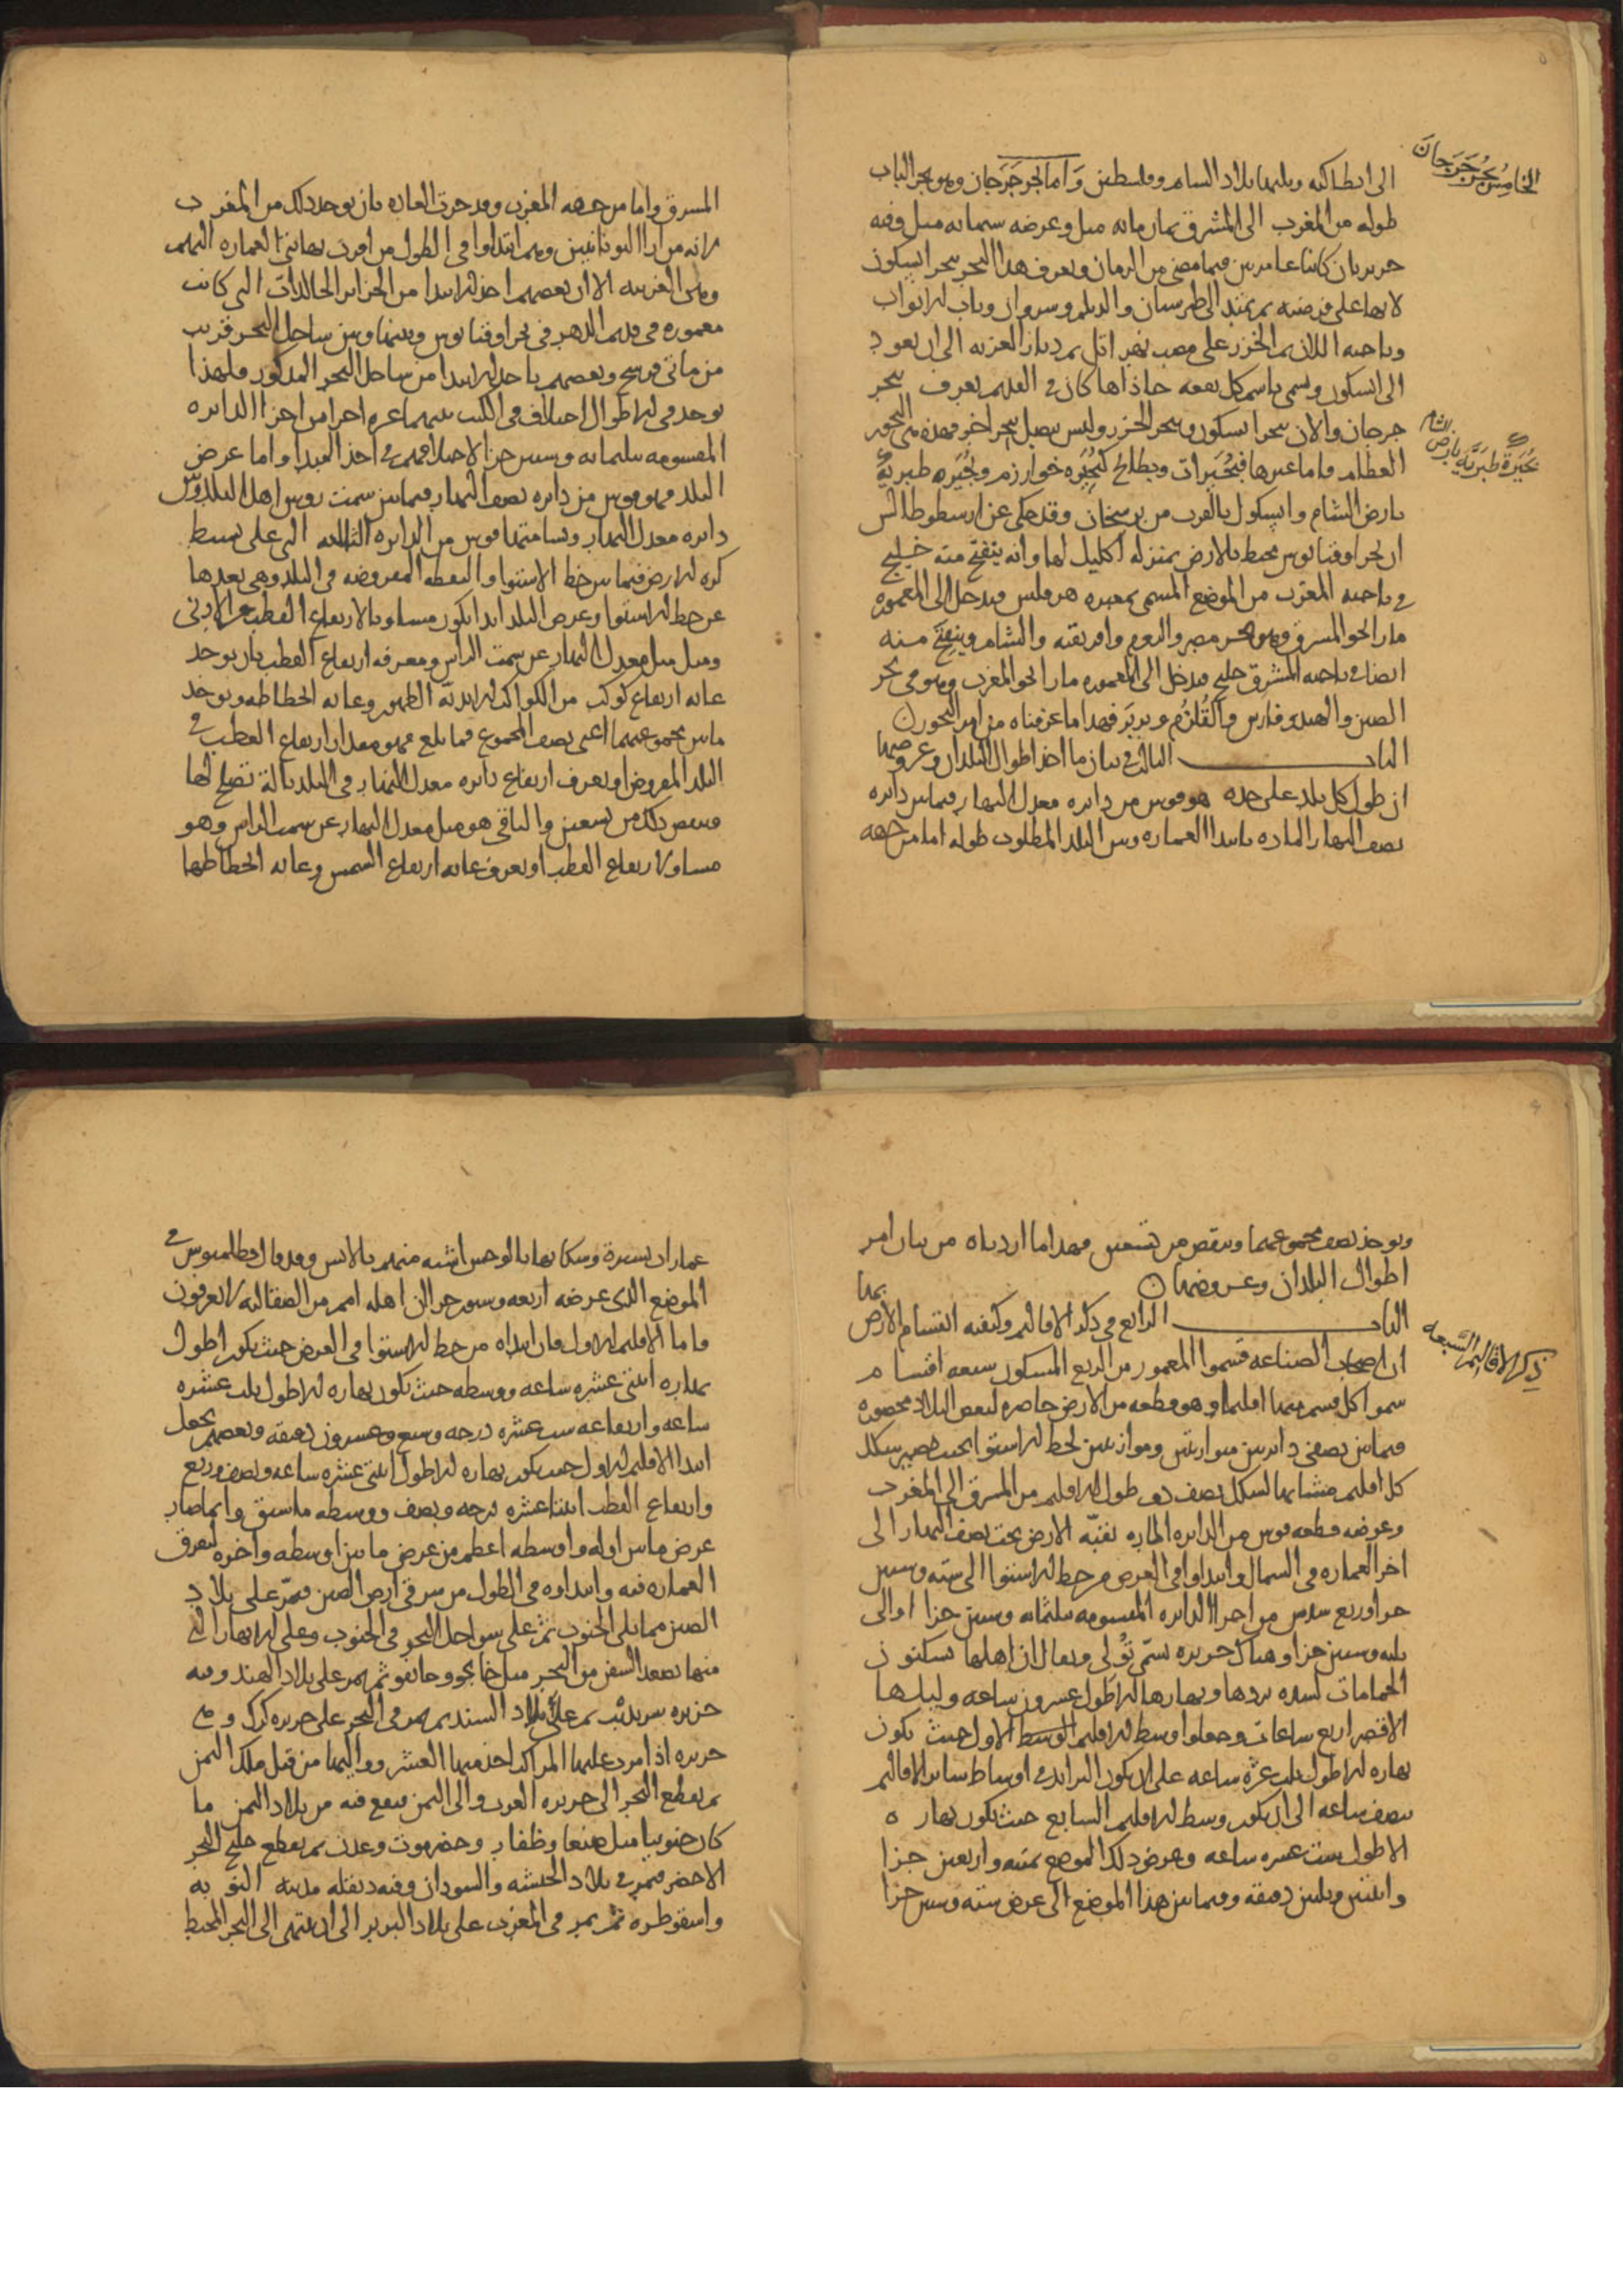 الى انطاكيه ويليها بلاد الشام وفلسطين وَاما بحر جَرجان وهو بحر الباب
الخامِسُ بَحْرُ جَرَجان
طوله من المغرب الى المشرق ثمان مائه ميل وعرضه ستمائه ميل وفيه
جزيرتان كانتا عامرتين فيما مضى من الزمان ويعرف هذا البحر ببحر ابسكون
لانها على فرضته ثم يمتد الى طبرستان والديلم وشروان وباب الابواب
وناحيه اللان ثم الخزر على مصب نهر اتل ثم ديار الغزيه الى ان يعود
الى ابسكون ويسمى باسم كل بقعه حاذاها كان في القديم يعرف ببحر
جرجان والان ببحر ابسكون وببحر الخزر وليس يتصل ببحر اخر فهذه هي البحور
العظام واما غيرها فبُحَيرات وبطايح كبُحَيره خوارزم وبُحَيره طبريّة
بُحَيرَةُ طَبَريَّة بارض الشام
بارض الشام وابسكول بالقرب من برسخان وقد حكى عن ارسطوطالس
ان بحر اوقيانوس محيط بالارض بمنزله اكليل لها وانه ينفتح منه خليج
في ناحيه المغرب من الموضع المسمى بمعبره هرقلس فيدخل الى المعموره
مارا نحو المشرق وهو بحر مصر والروم وافريقيه والشام وينفتح منه
ايضا في ناحيه المشرق خليج فيدخل الى المعموره مارا نحو المغرب وهو هي بحر
الصين والهند وفارس والقُلزُم وبربَر فهذا ما عرفناه من امر البحور ن
الباب الثالث في بيان ما اخذ اطوال البلدان وعروضها
ان طول كل بلد على حده هو قوس من دايره معدل النهار فيما بين دايره
نصف النهار الماره بابتدا العماره وبين البلد المطلوب طوله اما من جهه
المشرق واما من جهه المغرب وقد جرت العاده بان يوخذ ذلك من المغرب
لانه من ارا اليونانيين وهم ابتداوا في الطول من اقرب نهايتي العماره اليهم
وهي الغربيه الا ان بعضهم اخذ الابتدا من الجزاير الخالدات التي كانت
معموره في قديم الدهر في بحر اوقيانوس وبينها وبين ساحل البحر قريب
من مأتى فرسخ وبعضهم ياخذ الابتدا من ساحل البحر المذكور فلهذا
يوجد في الاطوال اختلاف في الكتب بينهما عشره اجزا من اجزا الدايره
المقسومه بثلثمائه وستين جزا لاختلافهم في اخذ المبدا واما عرض
البلد فهو قوس من دايره نصف النهار فيما بين سمت رووس اهل البلد وبين
دايره معدل النهار ويسامتها قوس من الدايره الثالثه التي على بسيط
كره الارض فيما بين خط الاستوا والنقطه المفروضه في البلد وهي بعدها
عن خط الاستوا وعرض البلد ابدا يكون مساويا لارتفاع القطب عن الارض
وميل معدل النهار عن سمت الراس ومعرفه ارتفاع القطب بان يوخذ
غايه ارتفاع كوكب من الكواكب الابديّه الظهور وغايه انحطاطه ويوخذ
ما بين مجموعهما اعنى نصف المجموع فما بلغ فهو مقدار ارتفاع القطب في
البلد المفروض او يعرف ارتفاع دايره معدل النهار في البلد بالة تصلح لها
وينقص ذلك من تسعين والباقي هو ميل معدل النهار عن سمت الراس وهو
مساو لارتفاع القطب او يعرف غايه ارتفاع الشمس وغايه انحطاطها
ويوخذ نصف مجموعهما وينقص من تسعين فهذا ما اردناه من بيان امر
اطوال البلدان وعروضها ن
الباب الرابع في ذكر الاقاليم وكيفيه انقسام الارض بها
ذِكر الاقاليم السَّبعه
ان اصحاب الصناعه قسموا المعمور من الربع المسكون سبعه اقسام
سموا كل قسم منها اقليما وهو قطعه من الارض حاصره لبعض البلاد محصوره
فيما بين نصفي دايرتين متوازيتين وموازيتين لخط الاستوا بحيث يصير شكل
كل اقليم مشابها لشكل نصف دف طول الاقليم من المشرق الى المغرب
وعرضه قطعه قوس من الدايره الماره بقبّه الارض تحت نصف النهار الى
اخر العماره في الشمال وابتداوا في العرض من خط الاستوا الى سته وستين
جزا وربع سدس من اجزا الدايره المقسومه بثلثمائه وستين جزا او الى
ثلثه وستين جزا وهناك جزيره تسمّى تُولى ويقال ان اهلها يسكنون
الحمامات لشده بردها ونهارها الاطول عشرون ساعه وليلها
الاقصر اربع ساعات وجعلوا وسط الاقليم الوسط الاول حيث يكون
نهاره الاطول ثلث عشره ساعه على ان يكون التزايد في اوساط ساير الاقاليم
بنصف ساعه الى ان يكون وسط الاقليم السابع حيث يكون نهاره
الاطول ست عشره ساعه وعرض ذلك الموضع ثمنيه واربعين جزا
واثنتين وثلثين دقيقه وفيما بين هذا الموضع الى عرض سته وستين جزا
عمارات يسيرة وسكانها بالوحش اشبه منهم بالانس وقد قال بطلميوس في
الموضع الذى عرضه اربعه وستون جزا ان اهله امم من الصقالبه لا يعرفون
فاما الاقليم الاول فان ابتداه من خط الاستوا في العرض حيث يكون اطول
نهاره اثنتي عشره ساعه ووسطه حيث يكون نهاره الاطول ثلث عشره
ساعه وارتفاعه ست عشره درجه وسبع وعشرون دقيقه وبعضهم يجعل
ابتدا الاقليم الاول حيث يكون نهاره الاطول اثنتي عشره ساعه ونصف وربع
وارتفاع القطب اثنتا عشره درجه ونصف ووسطه ما سبق وانما صار
عرض ما بين اوله واوسطه اعظم من عرض ما بين اوسطه واخره لتفرق
العماره فيه وابتداوه في الطول من شرقي ارض الصين فيمرّ على بلاد
الصين مما يلى الجنوب ثم على سواحل البحر في الجنوب وعلى الانهار التي
منها تصعد السفن من البحر مثل خانجو وخانفو ثم يمر على بلاد الهند وفيه
جزيره سرنديب ثم على بلاد السند ثم يمر في البحر على جزيره كرك وهي
جزيره اذا مرت عليها المراكب اخذ منها العشر وواليها من قبل ملك اليمن
ثم يقطع البحر الى جزيره العرب والى اليمن فيقع فيه من بلاد اليمن ما
كان جنوبيا مثل صنعا وظفار وحضرموت وعدن ثم يقطع خليج البحر
الاخضر فيمر في بلاد الحبشه والسودان وفيه دنقله مدينه النوبه
واسقوطره ثم يمر في المغرب على بلاد البربر الى ان ينتهى الى البحر المحيط